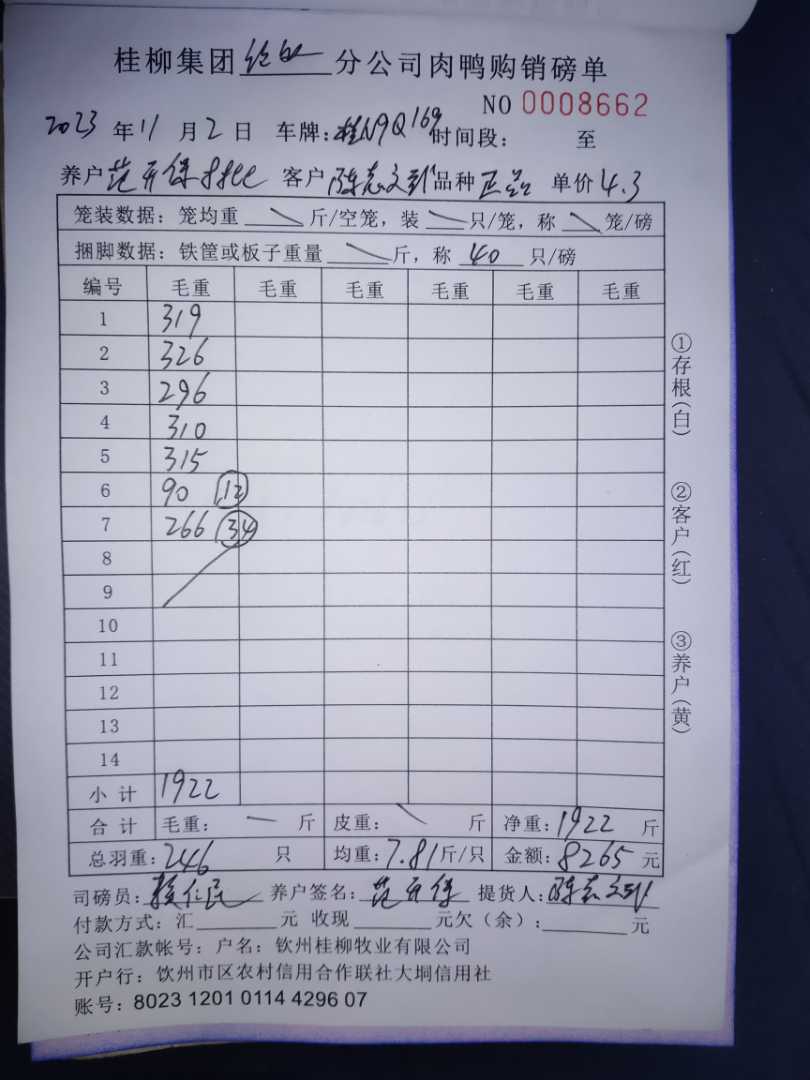 桂柳集团 分公司肉鸭购销磅单
NO 0008662
2023 年 11 月 2 日 车牌:桂N9Q169 时间段: 至
养户 范开保 客户 陈志文 品种 正品 单价 4.3
笼装数据:笼均重 斤/空笼,装 只/笼,称 笼/磅
捆脚数据:铁筐或板子重量 斤,称 40 只/磅
编号 毛重 毛重 毛重 毛重 毛重 毛重
1 319
2 326
3 296
4 310
5 315
6 90 12
7 266 34
8
9
10
11
12
13
14
小计 1922
合计 毛重: 斤 皮重: 斤 净重:1922 斤
总羽重:246 只 均重:7.81斤/只 金额:8265 元
司磅员: 养户签名:范开保 提货人:陈志文
付款方式:汇 元 收现 元欠(余): 元
公司汇款帐号:户名:钦州桂柳牧业有限公司
开户行:钦州市区农村信用合作联社大垌信用社
账号:8023 1201 0114 4296 07
①存根(白)
②客户(红)
③养户(黄)